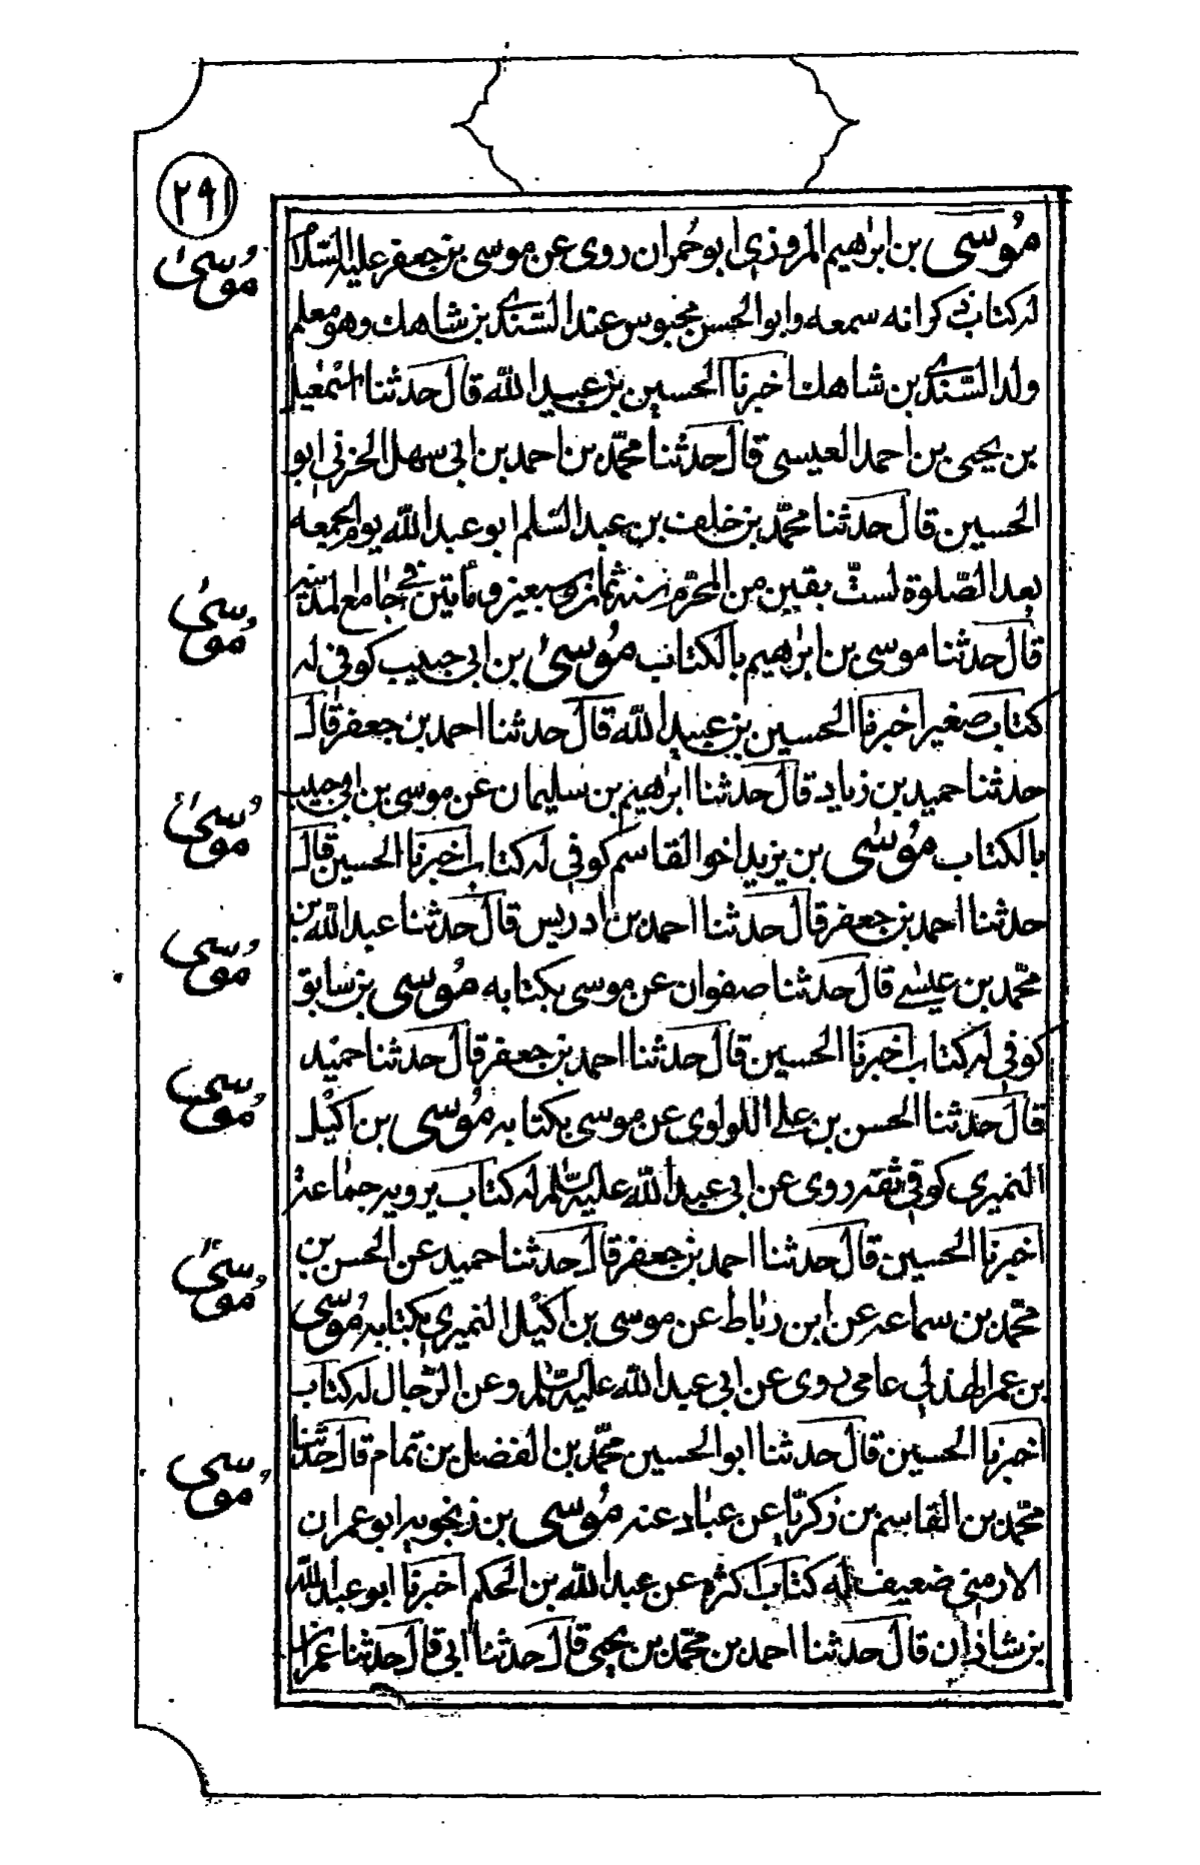 ٢٩١
مُوسى بن ابرٰهيم المروزي ابو حُمران روى عن موسى بن جعفر عليه السّلام
له كتاب ذكر انه سمعه وابو الحسن محبوس عند السّندي بن شاهك وهو معلم
ولد السّندي بن شاهك اخبرنا الحسين بن عبيد الله قال حدثنا اسمٰعيل
بن يحيى بن احمد العبسي قال حدثنا محمّد بن احمد بن ابي سهل الحرفي ابو
الحسين قال حدثنا محمّد بن خلف بن عبد السّلم ابو عبد الله يوم الجمعه
بعد الصّلوة لستّ بقين من المحرّم سنة ثمان وسبعين ومأتين في جامع المدينه
قال حدثنا موسى بن ابرٰهيم بالكتاب مُوسىٰ بن ابي حبيب كوفي له
كتاب صغير اخبرنا الحسين بن عبيد الله قال حدثنا احمد بن جعفر قال
حدثنا حميد بن زياد قال حدثنا ابرٰهيم بن سليمان عن موسى بن ابي حبيب
بالكتاب مُوسٰى بن يزيد اخو القاسم كوفي له كتاب اخبرنا الحسين قال
حدثنا احمد بن جعفر قال حدثنا احمد بن ادريس قال حدثنا عبد الله بن
محمّد بن عيسٰى قال حدثنا صفوان عن موسى بكتابه مُوسى بن سابق
كوفي له كتاب اخبرنا الحسين قال حدثنا احمد بن جعفر قال حدثنا حميد
قال حدثنا الحسن بن علي اللولوى عن موسى بكتابه مُوسى بن اكيل
النميري كوفي ثقة روى عن ابي عبد الله عليه السّلم له كتاب يرويه جماعة
اخبرنا الحسين قال حدثنا احمد بن جعفر قال حدثنا حميد عن الحسن بن
محمّد بن سماعه عن ابن رباط عن موسى بن اكيل النميري بكتابه مُوسى
بن عمر الهذلي عامي روى عن ابي عبد الله عليه السّلم وعن الرّجال له كتاب
اخبرنا الحسين قال حدثنا ابو الحسين محمّد بن الفضل بن تمام قال حدّثنا
محمّد بن القاسم بن زكريّا عن عبّاد عنه مُوسى بن زنجويه ابو عمران
الارمني ضعيف له كتاب اكثره عن عبد الله بن الحكم اخبرنا ابو عبد الله
بن شاذان قال حدثنا احمد بن محمّد بن يحيى قال حدثنا ابي قال حدثنا عمران
مُوسىٰ
مُوسىٰ
مُوسىٰ
مُوسى
مُوسى
مُوسىٰ
مُوسى